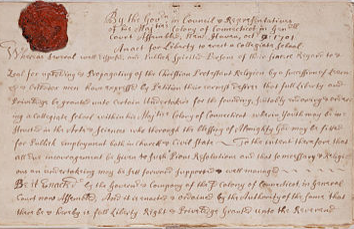 By the Govn in Council & Representatives
of his Majties Colony of Connecticut in Genll
Court Assembled, New-Haven, Oct 9 1701
An act for Liberty to erect a Collegiate School
Whereas several well disposed, and Publick Spirited Persons of their sincere Regard to &
Zeal for upholding & Propagating of the Christian Protestant Religion by a succession of Learned
& Orthodox men have expressed by Petition their earnest desires that full Liberty and
Priviledge be granted unto Certain Undertakers for the founding, suitably endowing & ordering
a Collegiate School within his Majties Colony of Connecticut wherein Youth may be instructed
in the Arts & Sciences who through the blessing of Almighty God may be fitted
for Publick employment both in Church & Civil State. To the intent therefore that
all due incouragement be Given to such Pious Resolutions and that so necessary & Religious
an undertaking may be set forward supported & well managed
Be it Enacted by the Governr & Company of the sd Colony of Connecticut, in General
Court now Assembled, And it is enacted & ordained by the Authority of the same that
there be & hereby is full Liberty Right & Priviledge Granted unto the Reverend